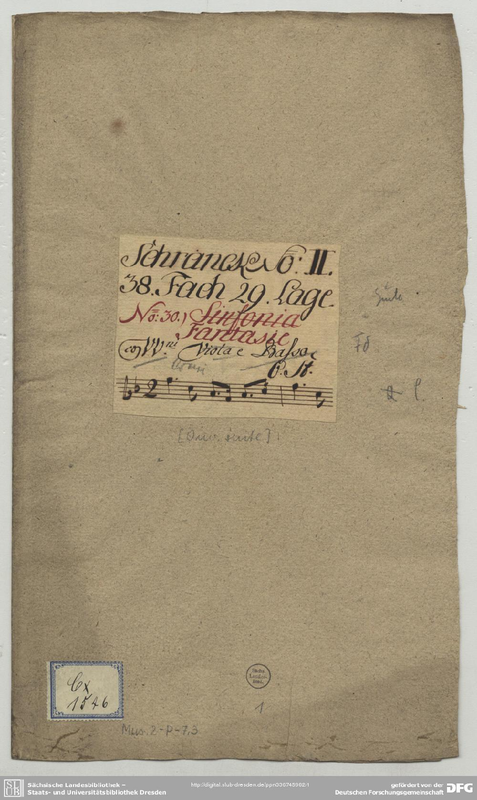 Schranck No: II.
38. Fach 29. Lage.
No: 30.) Sinfonia
Fantasie
co VV.ni Viola e Basso
6. St.
2
Suite
Fd
[Div. suite]
Cx
1546
Mus. 2-P-7,3
1
Sächsische Landesbibliothek –
Staats- und Universitätsbibliothek Dresden
gefördert von der
Deutschen Forschungsgemeinschaft
DFG